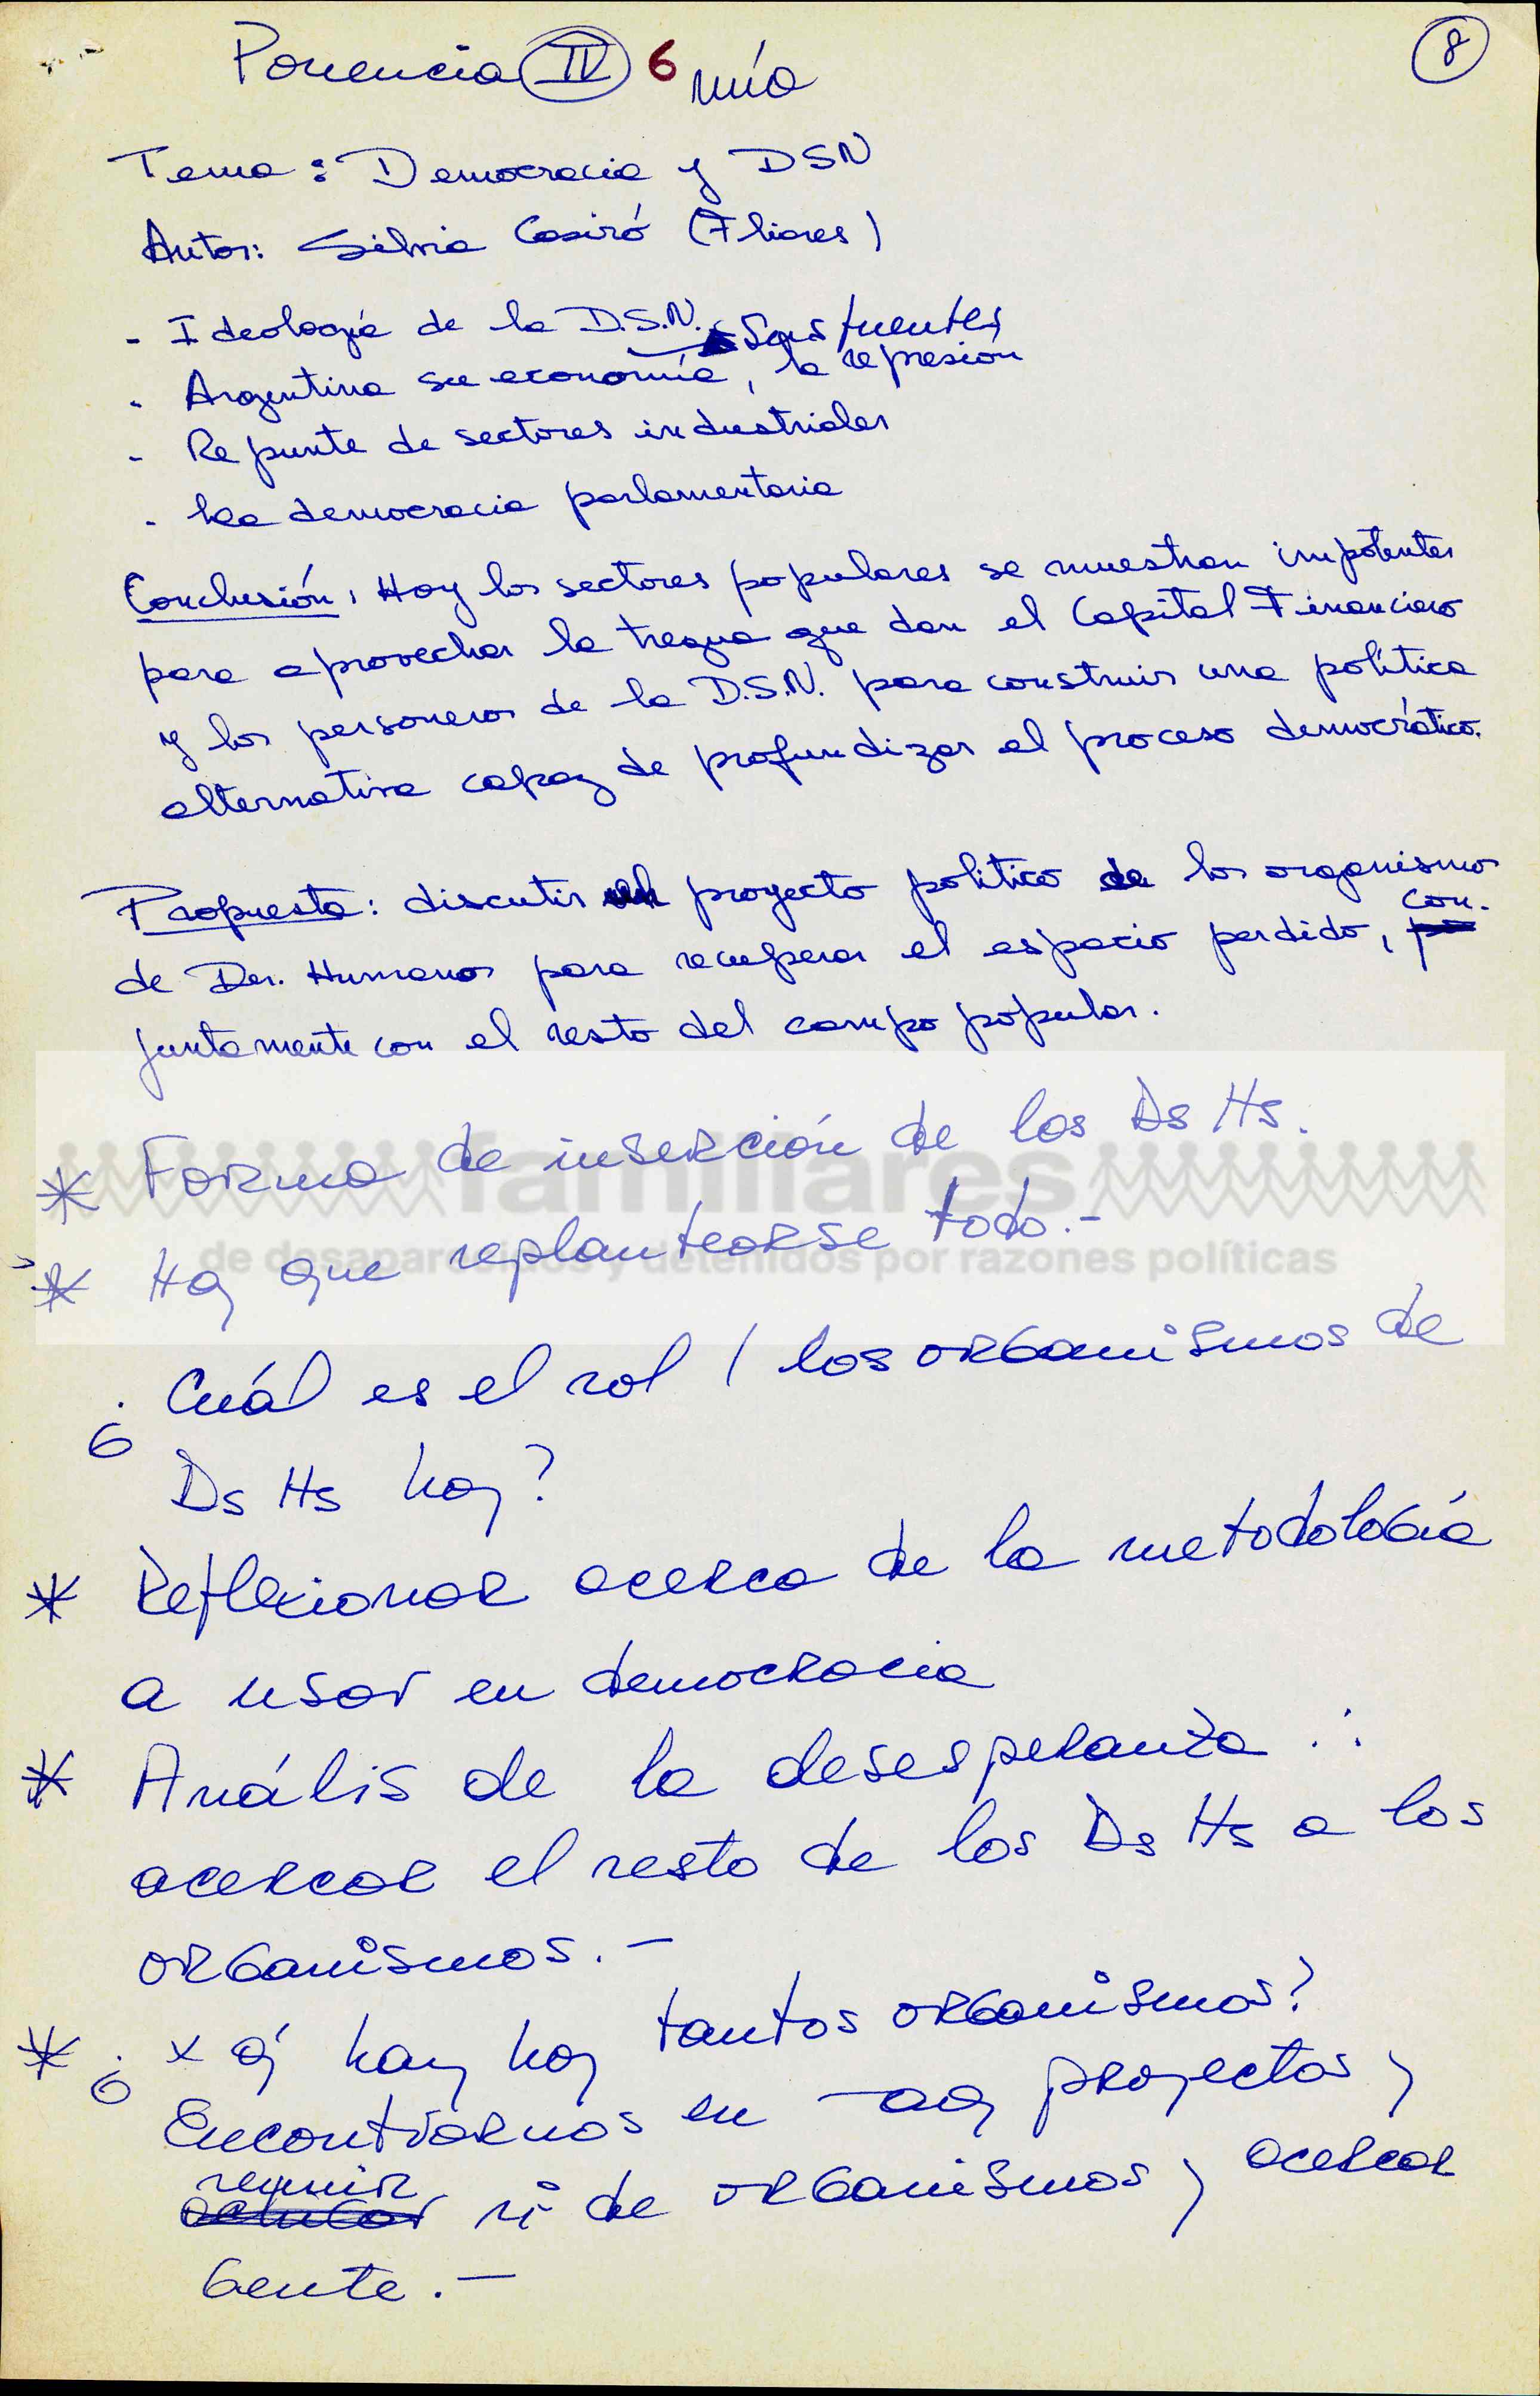 Ponencia IV 6 mía
8
Tema: Democracia y DSN
Autor: Silvia Casiró (Fliares)
- Ideología de la D.S.N. sus fuentes
- Argentina su economía, la represión
- Repunte de sectores industriales
- La democracia parlamentaria
Conclusión: Hoy los sectores populares se muestran impotentes
para aprovechar la tregua que dan el Capital Financiero
y los personeros de la D.S.N. para construir una política
alternativa capaz de profundizar el proceso democrático.
Propuesta: discutir proyecto político de los organismos
de Der. Humanos para recuperar el espacio perdido, con-
juntamente con el resto del campo popular.
* Forma de inserción de los Ds Hs.
familiares
* Hay que replantearse todo.-
de desaparecidos y detenidos por razones políticas
¿Cuál es el rol / los organismos de
Ds Hs hoy?
* Reflexionar acerca de la metodología
a usar en democracia
* Anális de la desesperanza ∴
acercar el resto de los Ds Hs a los
organismos.-
* ¿ x q' hay hoy tantos organismos?
Encontrarnos en proyectos y
reunir de organismos y acercar
gente.-